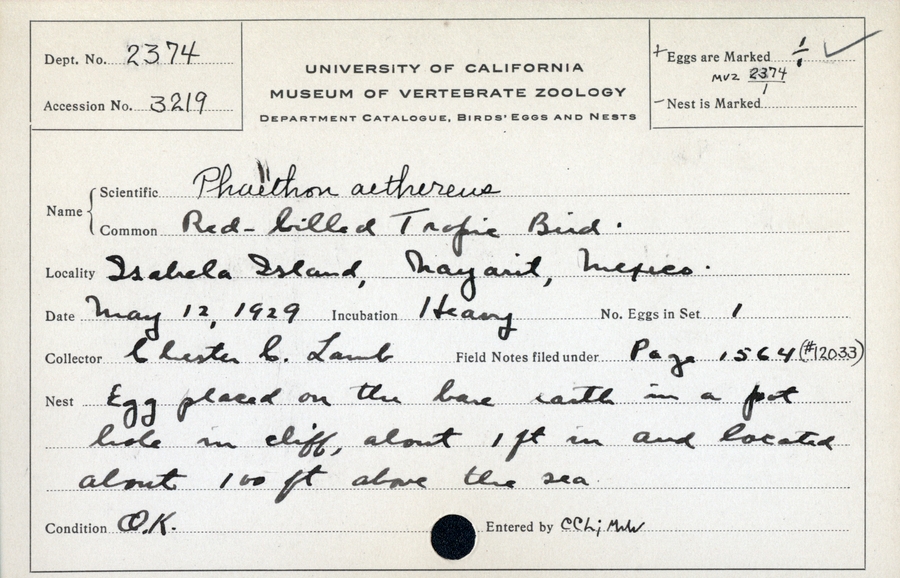 Dept. No. 2374
Accession No. 3219
UNIVERSITY OF CALIFORNIA
MUSEUM OF VERTEBRATE ZOOLOGY
DEPARTMENT CATALOGUE, BIRDS' EGGS AND NESTS
+ Eggs are Marked 1/1 ✓
MVZ 2374/1
- Nest is Marked
Name { Scientific Phaëthon aethereus
Common Red-billed Tropic Bird.
Locality Isabela Island, Nayarit, Mexico.
Date May 12, 1929 Incubation Heavy No. Eggs in Set 1
Collector Chester C. Lamb Field Notes filed under Page 1564 (#12033)
Nest Egg placed on the bare earth in a pot
hole in cliff, about 1 ft in and located
about 100 ft above the sea
Condition O.K. Entered by CCL;